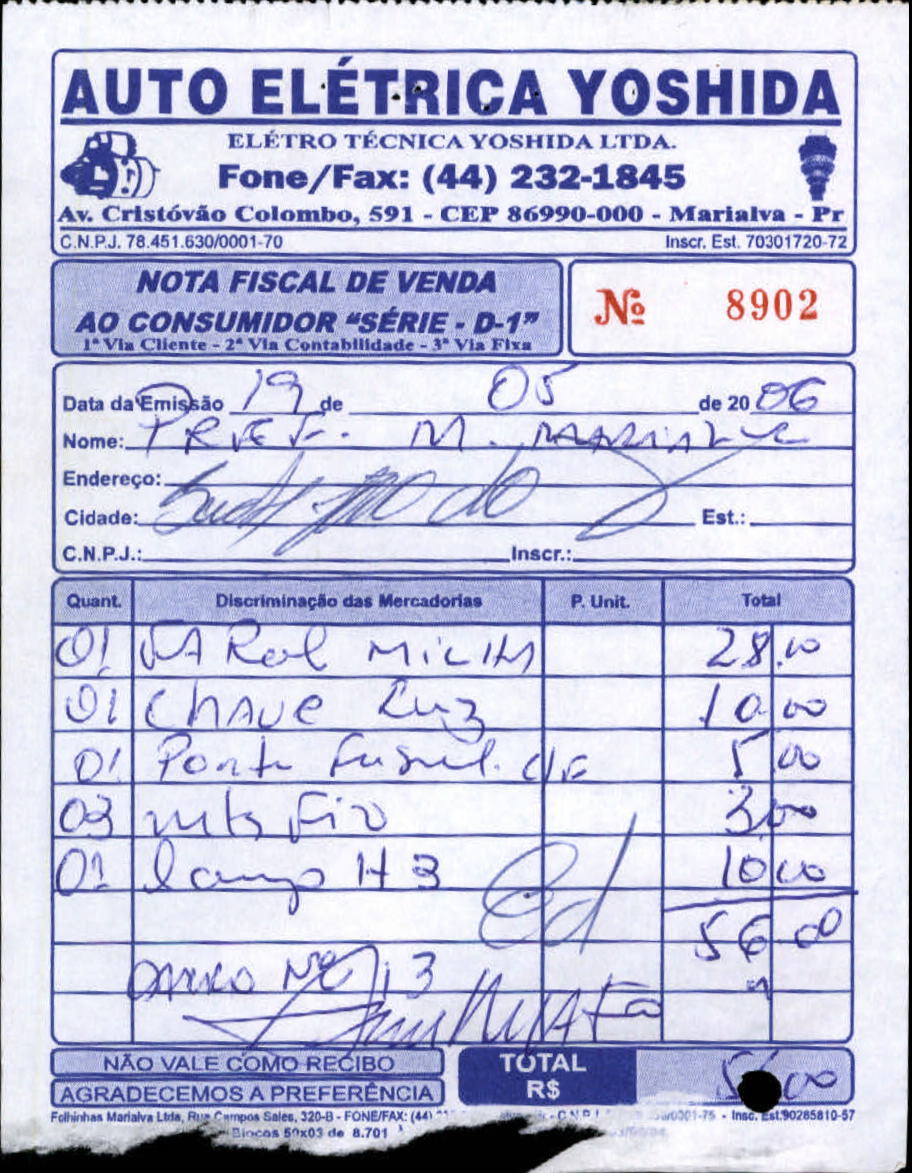 AUTO ELÉTRICA YOSHIDA
ELÉTRO TÉCNICA YOSHIDA LTDA.
Fone/Fax: (44) 232-1845
Av. Cristóvão Colombo, 591 - CEP 86990-000 - Marialva - Pr
C.N.P.J. 78.451.630/0001-70 Inscr. Est. 70301720-72
NOTA FISCAL DE VENDA
AO CONSUMIDOR "SÉRIE - D-1"
1ª Via Cliente - 2ª Via Contabilidade - 3ª Via Fixa
Nº 8902
Data da Emissão 19 de 05 de 2006
Nome: PREF. M. MARIALVA
Endereço:
Cidade: Est.:
C.N.P.J.: Inscr.:
Quant. Discriminação das Mercadorias P. Unit. Total
01 FARol MiLIH 28.00
01 Chave Luz 10.00
01 Porta Fusivel. 5.00
03 mts Fio 3.00
01 lamp H3 10.00
56.00
Nº 13
NÃO VALE COMO RECIBO
AGRADECEMOS A PREFERÊNCIA
TOTAL
R$ 56.00
Folhinhas Marialva Ltda, Rua Campos Sales, 320-B - FONE/FAX: (44) - C.N.P.J. 0001-75 - Insc. Est.90265810-57
Blocos 50x03 de 8.701